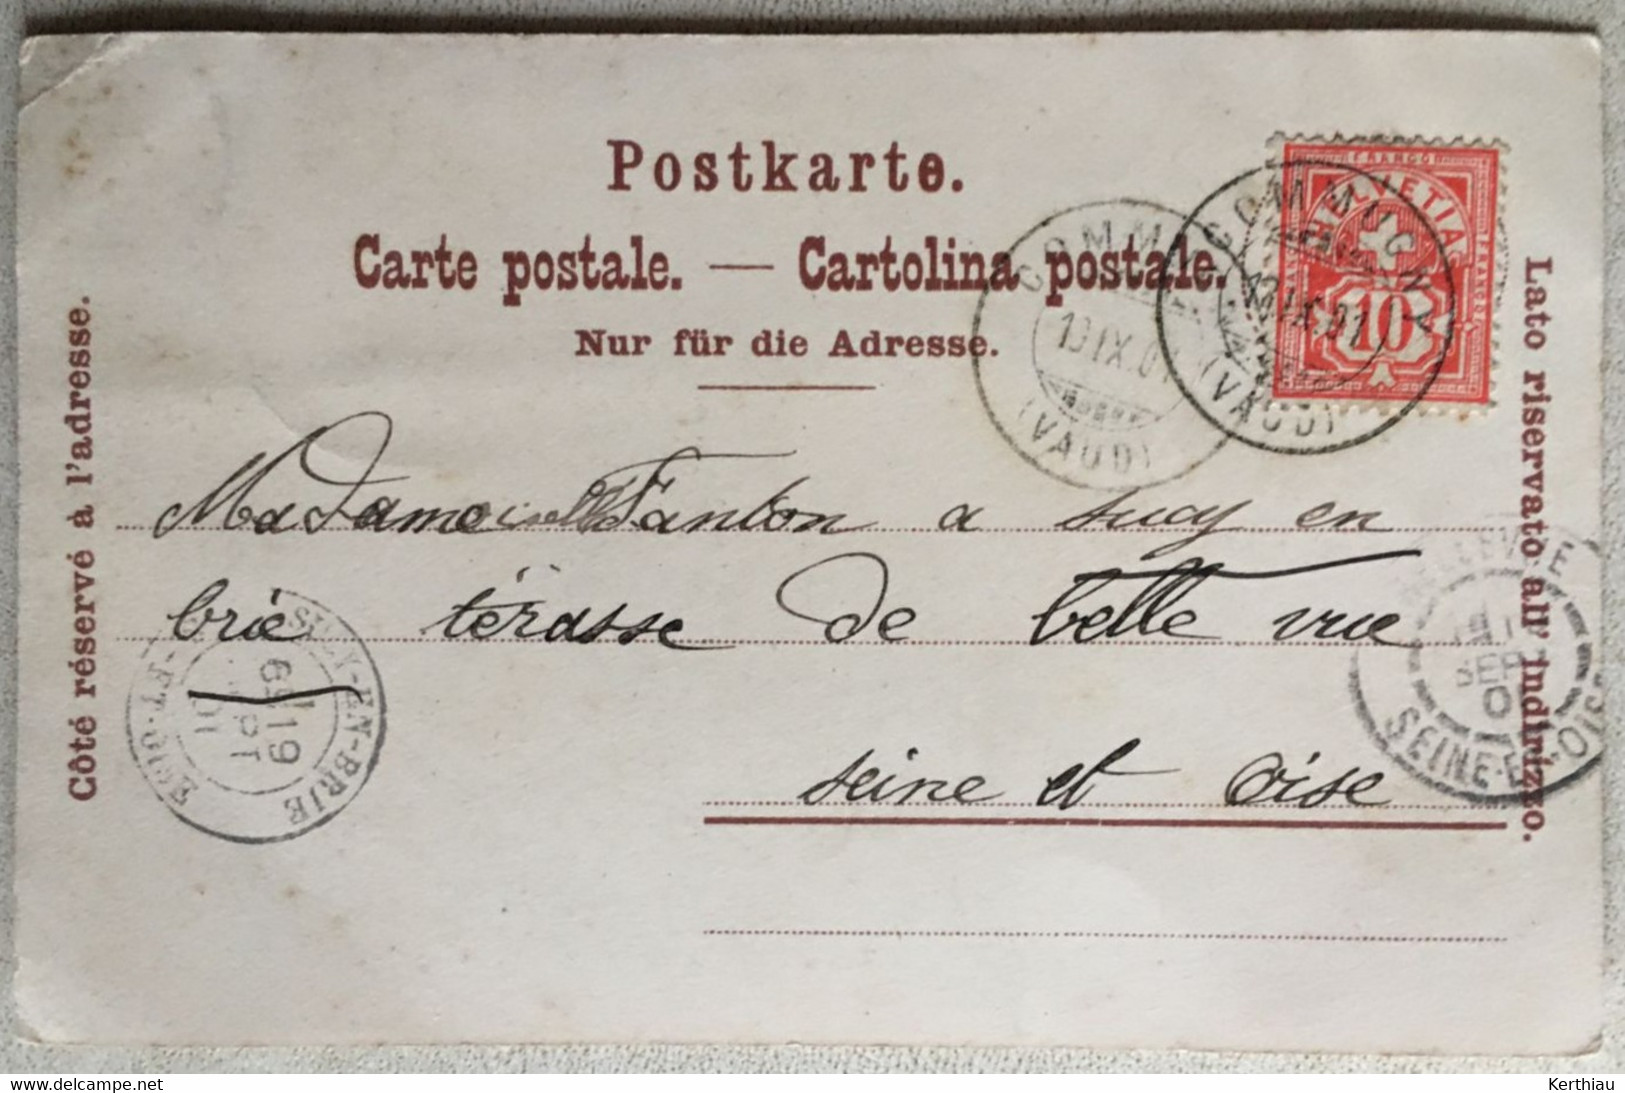 Postkarte.
Carte postale. — Cartolina postale.
Nur für die Adresse.
Côté réservé à l'adresse.
Lato riservato all' indirizzo.
FRANCO
HELVETIA
10
FRANCO
COMMUGNY
IX.01
(VAUD)
COMM
IX.01
(VAUD)
Madamoiselle Fanton a sucy en
brie térasse de belle vue
seine et oise
SUCY-EN-BRIE
SEINE-ET-OISE
19
SEPT
01
SEPT
SEINE-ET-OISE
delcampe.net
Kerthiau